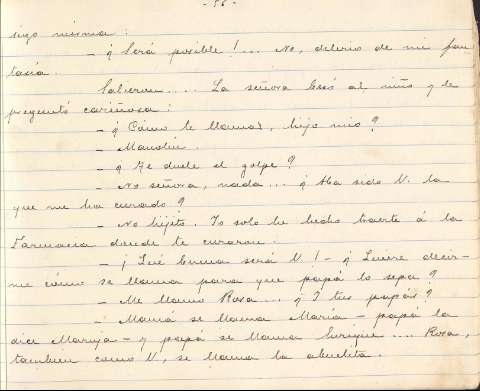 - 56 -
sigo misma:
- ¿Será posible!... No, delirio de mi fan
tasía.
Salieron..... La señora besó al niño y le
preguntó cariñosa:
- ¿Cómo te llamas, hijo mio?
- Manolín.
- ¿Te duele el golpe?
- No señora, nada.... ¿Ha sido V. la
que me ha curado?
- No hijito. Yo solo he hecho traerte á la
Farmacia donde te curaron.
- ¡Qué buena será V! - ¿Quiere decir-
me cómo se llama para que papá lo sepa?
- Me llamo Rosa... ¿Y tus papás?
- Mamá se llama María - papá la
dice Maruja - y papá se llama Enrique.... Rosa,
tambien como V, se llama la abuelita.